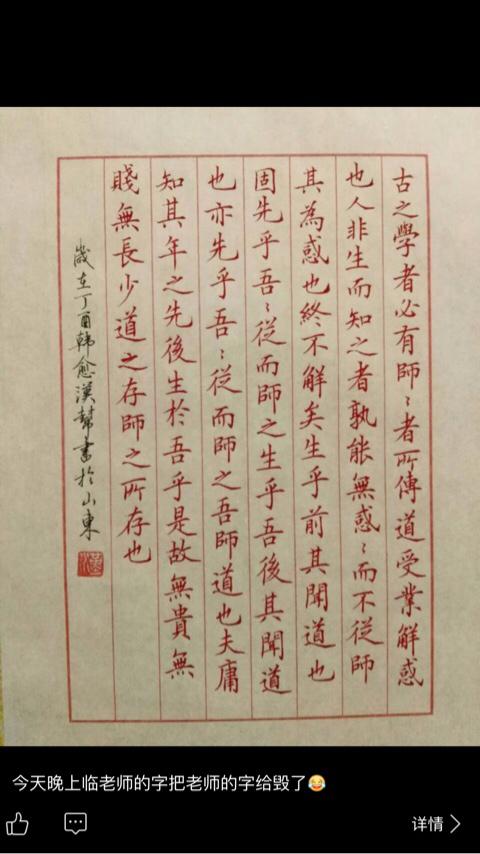 古之學者必有師〻者所傳道受業解惑
也人非生而知之者孰能無惑〻而不從師
其為惑也終不解矣生乎前其聞道也
固先乎吾〻從而師之生乎吾後其聞道
也亦先乎吾〻從而師之吾師道也夫庸
知其年之先後生於吾乎是故無貴無
賤無長少道之存師之所存也
歲在丁酉韓愈漢幫書於山東
今天晚上临老师的字把老师的字给毁了😂
详情